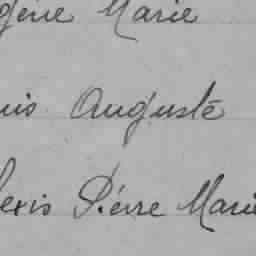 gène Marie
uis Auguste
lexis Pierre Marie